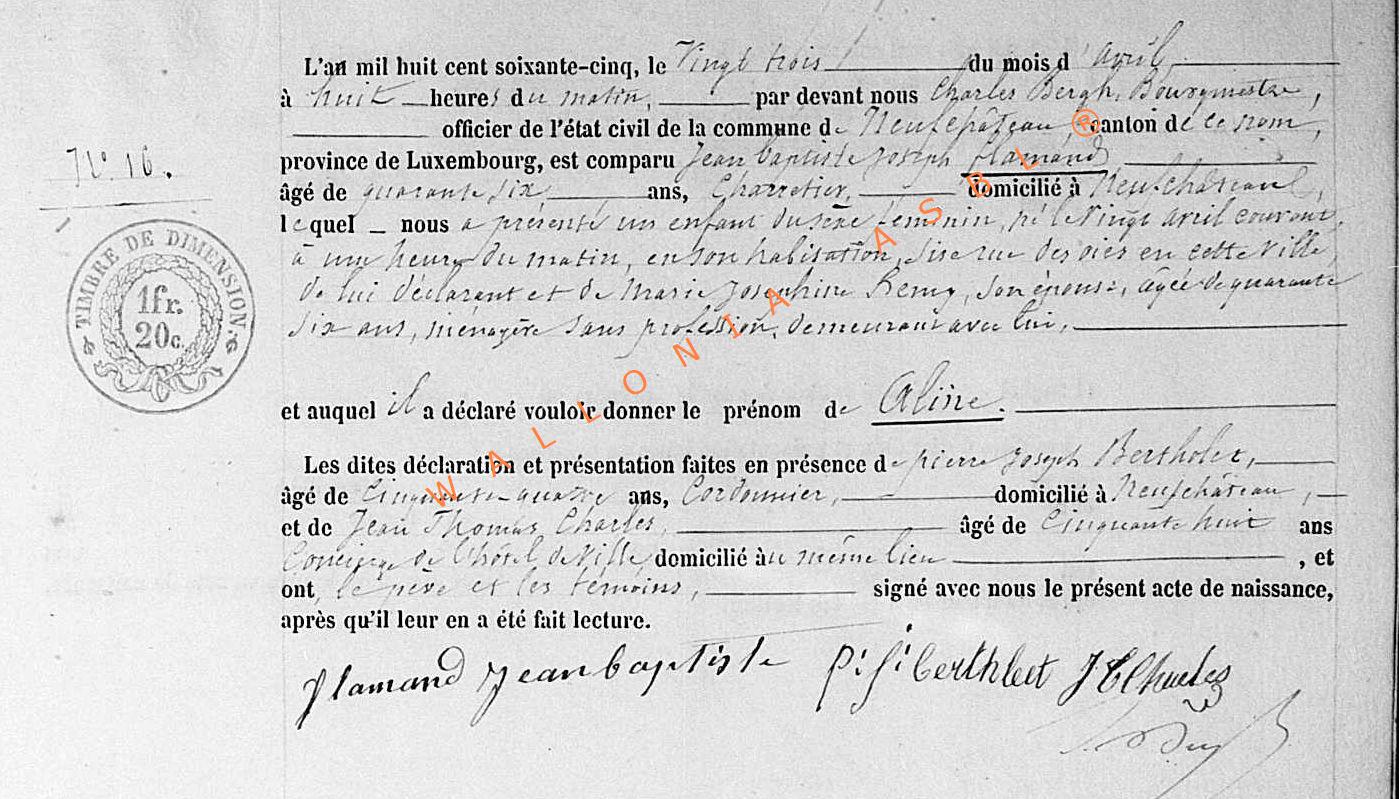 L'an mil huit cent soixante-cinq, le Vingt trois du mois d'avril,
à huit heures du matin, par devant nous Charles Bergh, Bourgmestre,
officier de l'état civil de la commune de Neufchâteau, canton de ce nom,
N°. 16.
province de Luxembourg, est comparu Jean baptiste Joseph flamand
âgé de quarante six ans, Charretier, domicilié à Neufchâteau,
lequel nous a présenté un enfant du sexe féminin, né le Vingt avril courant,
à une heure du matin, en son habitation, sise rue des oies en cette ville,
de lui déclarant et de Marie Josephine Remy, son épouse, agée de quarante
six ans, ménagère sans profession, demeurant avec lui,
TIMBRE DE DIMENSION.
1 fr.
20 c.
et auquel il a déclaré vouloir donner le prénom de Aline.
Les dites déclaration et présentation faites en présence de pierre Joseph Bertholet,
âgé de Cinquante-quatre ans, Cordonnier, domicilié à Neufchâteau,
et de Jean Thomas Charles, âgé de Cinquante huit ans
Concierge de l'hôtel de Ville domicilié au même lieu, et
ont, le père et les témoins, signé avec nous le présent acte de naissance,
après qu'il leur en a été fait lecture.
flamand Jean baptiste P: J: berthlet J T Charles
WALLONIA ASBL ®